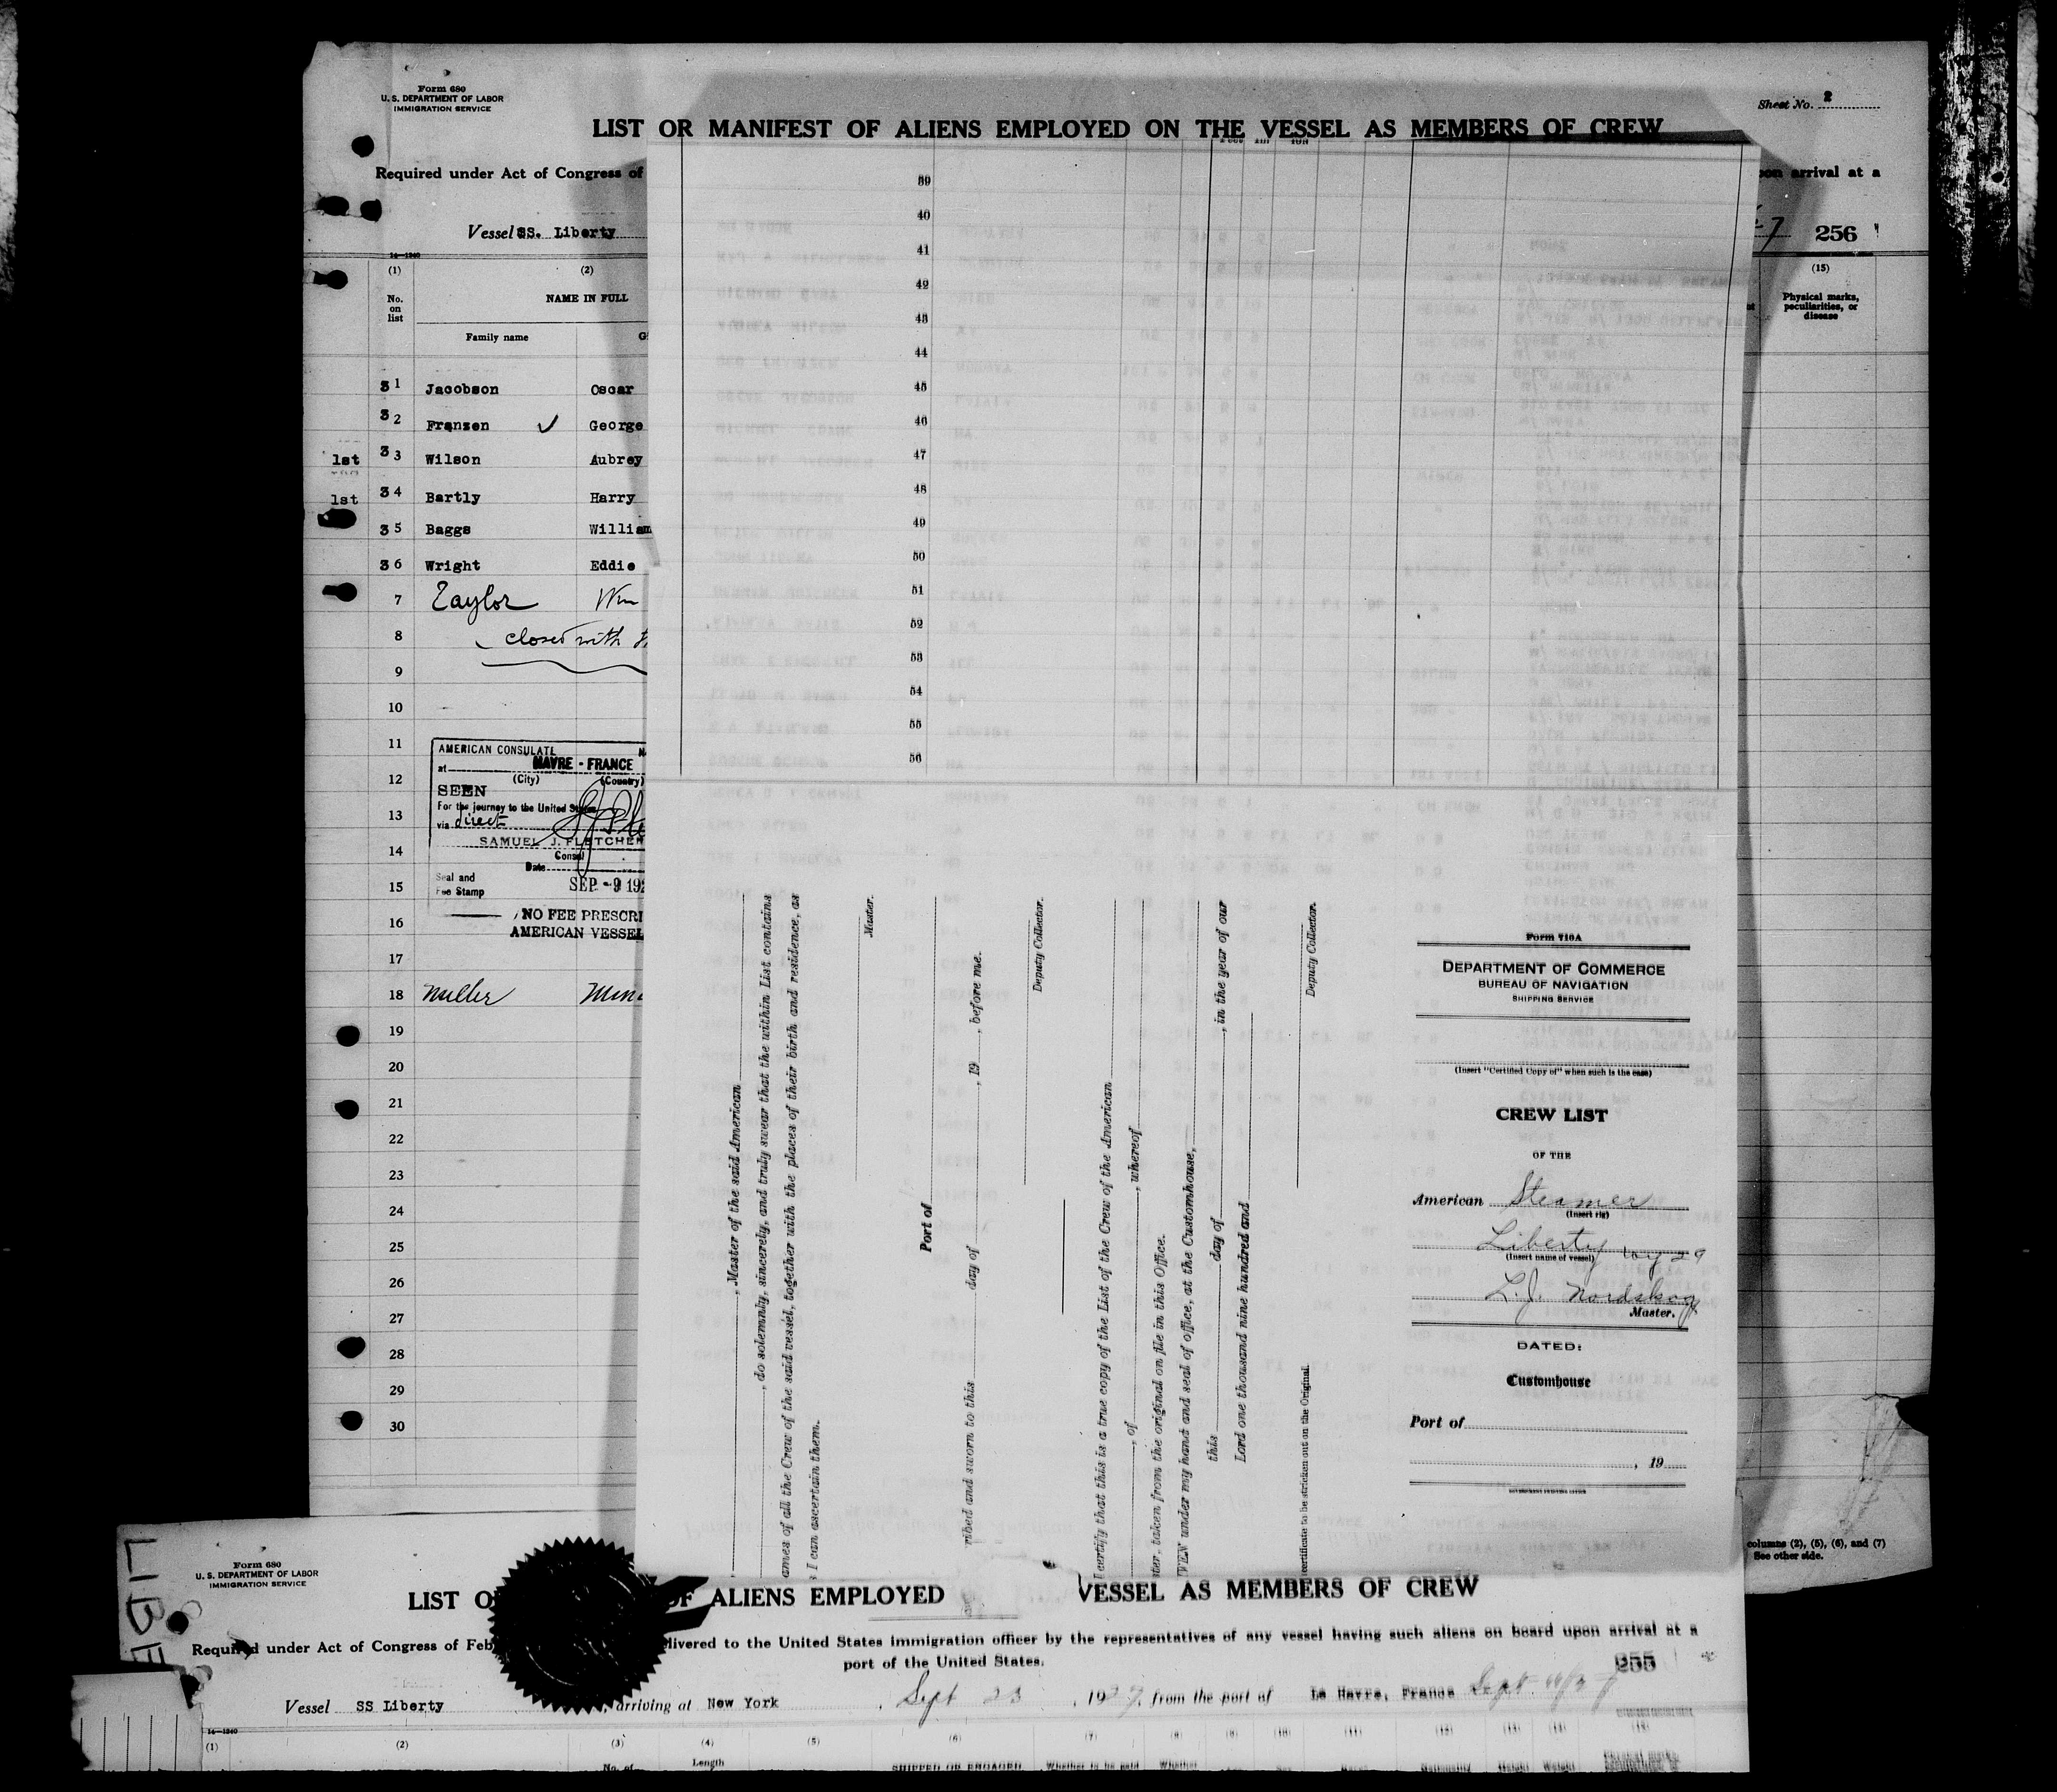 Form 680
U. S. DEPARTMENT OF LABOR
IMMIGRATION SERVICE
Sheet No. 2
LIST OR MANIFEST OF ALIENS EMPLOYED ON THE VESSEL AS MEMBERS OF CREW
Required under Act of Congress of
upon arrival at a
Vessel SS. Liberty
256
14—1240
(1) (2) (15)
No. on list
NAME IN FULL
Physical marks, peculiarities, or disease
Family name
31 Jacobson Oscar
32 Fransen George
1st 33 Wilson Aubrey
1st 34 Bartly Harry
35 Baggs William
36 Wright Eddie
7 Taylor Wm
8 closed with
9
10
11
12
13
14
15
16
17
18 Miller
19
20
21
22
23
24
25
26
27
28
29
30
AMERICAN CONSULATE
at HAVRE - FRANCE
(City) (Country)
SEEN
For the journey to the United States
via direct
SAMUEL J. FLETCHER
Consul
Date
Seal and
Fee Stamp
SEP - 9 192
NO FEE PRESCRI
AMERICAN VESSEL
39
40
41
42
43
44
45
46
47
48
49
50
51
52
53
54
55
56
, Master of the said American
, do solemnly, sincerely, and truly swear that the within List contains
ames of all the Crew of the said vessel, together with the places of their birth and residence, as
I can ascertain them.
Master.
Port of
ribed and sworn to this day of , 19 , before me.
Deputy Collector.
I certify that this is a true copy of the List of the Crew of the American
, of , whereof
ster, taken from the original on file in this Office.
VEN under my hand and seal of office, at the Customhouse,
this day of , in the year of our
Lord one thousand nine hundred and
Deputy Collector.
ertificate to be stricken out on the Original.
Form 710A
DEPARTMENT OF COMMERCE
BUREAU OF NAVIGATION
SHIPPING SERVICE
(Insert "Certified Copy of" when such is the case)
CREW LIST
OF THE
American Steamer
(Insert rig)
Liberty voy 29
(Insert name of vessel)
L.J. Nordskog
Master.
DATED:
Customhouse
Port of
, 19
columns (2), (5), (6), and (7)
See other side.
LIBE
Form 680
U. S. DEPARTMENT OF LABOR
IMMIGRATION SERVICE
LIST O OF ALIENS EMPLOYED VESSEL AS MEMBERS OF CREW
Required under Act of Congress of Feb livered to the United States immigration officer by the representatives of any vessel having such aliens on board upon arrival at a
port of the United States.
255
Vessel SS Liberty , arriving at New York , Sept 23 , 1927, from the port of Le Havre, France Sept
14—1240
(1) (2) (3) (4) (5) (6) (7) (8) (9) (10) (11) (12) (13) (14) (15)
No. of Length SHIPPED OR ENGAGED Whether to be paid Whether